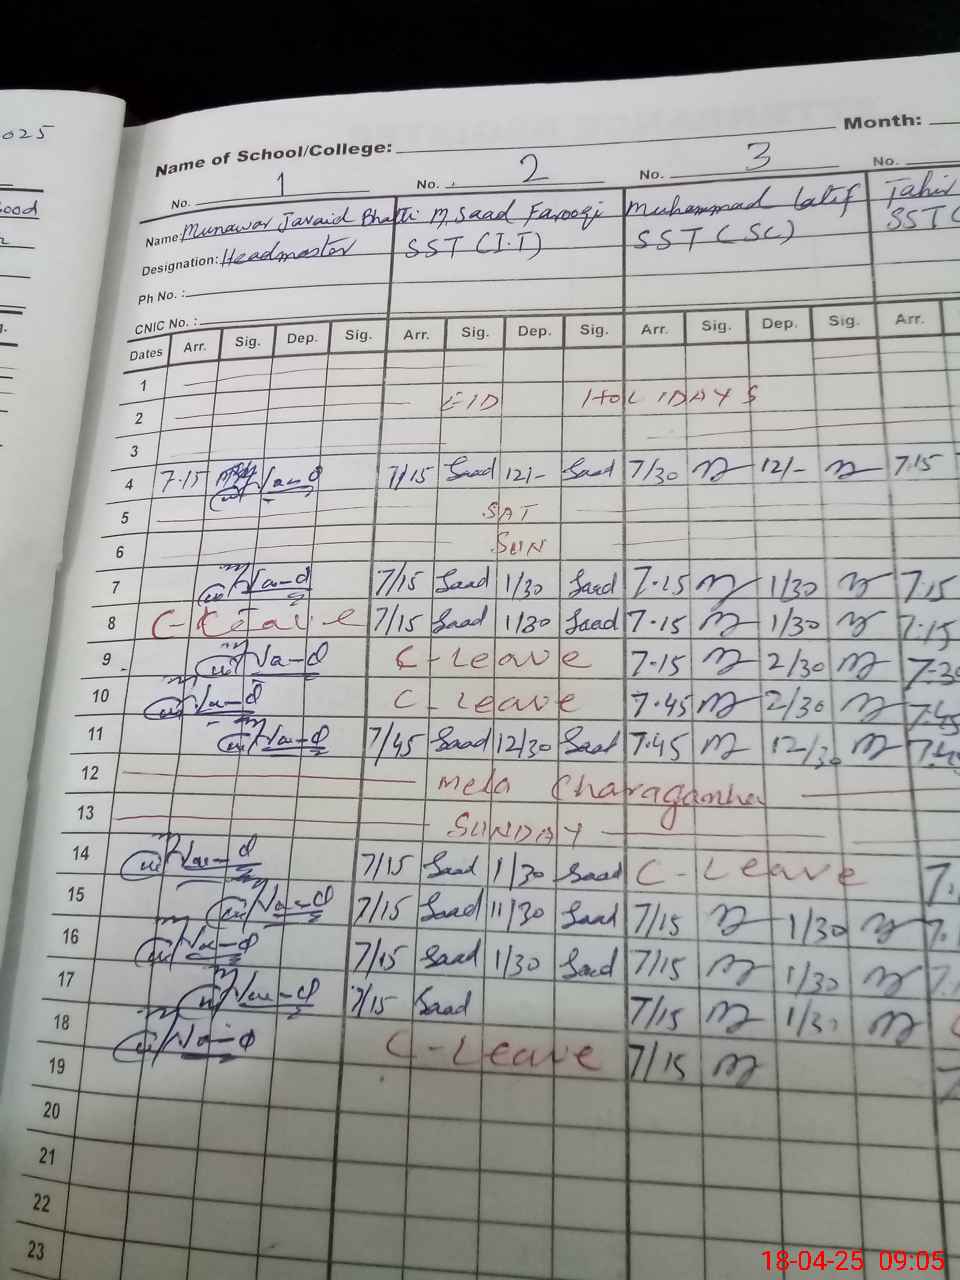 025
Name of School/College:
Month:
No. 1 No. 2 No. 3 No.
ood
Name: Munawar Javaid Bhatti M, Saad Farooqi Muhammad Latif Tahir
Designation: Headmaster SST (I.T) SST (SC) SST (
Ph No. :
CNIC No. :
Dates Arr. Sig. Dep. Sig. Arr. Sig. Dep. Sig. Arr. Sig. Dep. Sig. Arr.
1
2 EID HOLIDAYS
3
4 7.15 7/15 Saad 12/- Saad 7/30 12/- 7.15
5 SAT
6 SUN
7 7/15 Saad 1/30 Saad 7.15 1/30 7.15
8 C-Leave 7/15 Saad 1/30 Saad 7.15 1/30 7.15
9 C-Leave 7.15 2/30 7.30
10 C-Leave 7.45 2/30 7.45
11 7/45 Saad 12/30 Saad 7.45 12/30 7.45
12 Mela Charaganha
13 SUNDAY
14 7/15 Saad 1/30 Saad C-Leave 7.
15 7/15 Saad 11/30 Saad 7/15 1/30 7.1
16 7/15 Saad 1/30 Saad 7/15 1/30 7.1
17 7/15 Saad 7/15 1/30
18 C-Leave 7/15
19
20
21
22
23
18-04-25 09:05